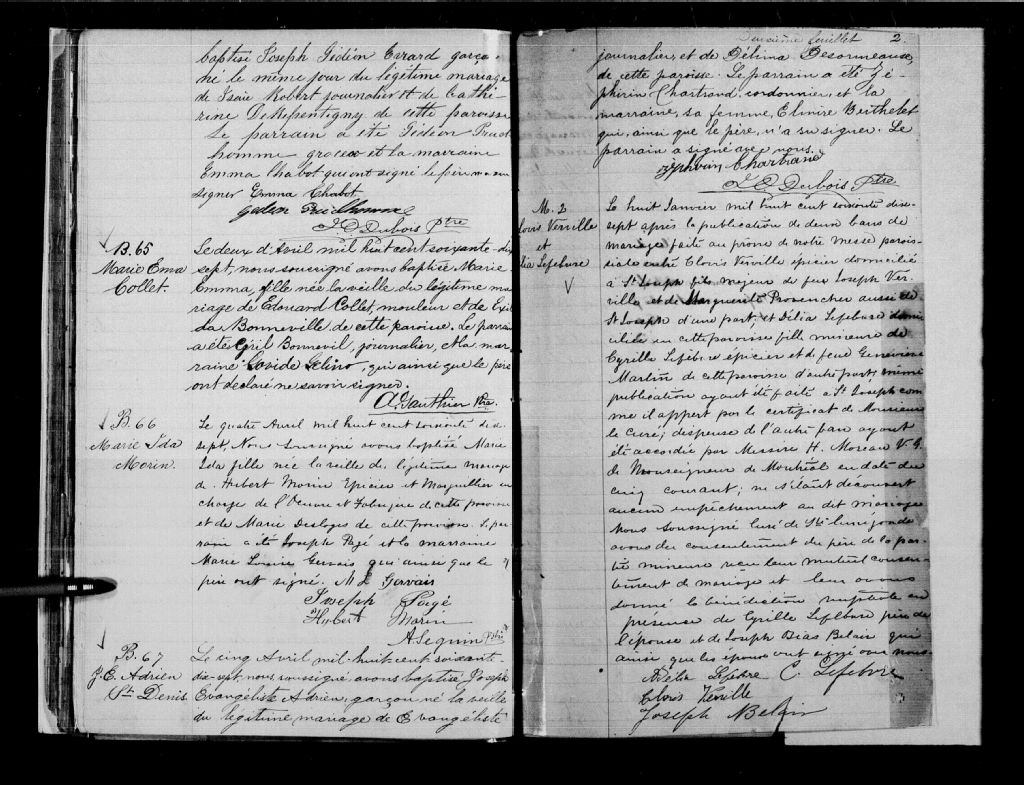 baptisé Joseph Gédéon Errard garçon
né le même jour du légitime mariage
de Isaïe Robert journalier et de Cathé-
rine DeRepentigny de cette paroisse
Le parrain a été Gédéon Prud
homme grocer et la marraine
Emma Chabot qui ont signé le père
signer Emma Chabot
Gedeon Prudhomme
Dubois Ptre
B. 65
Marie Ema
Collet.
Le deux d'Avril mil huit cent soixante-dix
sept, nous soussigné avons baptisé Marie
Emma, fille née la veille du légitime ma-
riage de Edouard Collet, mouleur et de Exil
da Bonneville de cette paroisse. Le parrain
a été Cyril Bonnevil, journalier, et la mar-
raine Lovide Gelino, qui ainsi que le père
ont déclaré ne savoir signer.
A. Gauthier Ptre.
B. 66
Marie Ida
Morin.
Le quatre Avril mil huit cent soixante dix
sept, Nous Soussigné avons baptisé Marie
Ida fille née la veille du légitime mariage
de Hubert Morin Epicier et Marguillier en
charge de l'Oeuvre et Fabrique de cette paroisse
et de Marie Desloges de cette paroisse. Le par-
rain a été Joseph Pagé et la marraine
Marie Louise Gervais qui ainsi que le
père ont signé. M L Gervais
Joseph Pagé
Hubert Morin
A Seguin Ptre
B. 67
J. E. Adrien
St. Denis
Le cinq Avril mil-huit cent soixante-
dix-sept nous soussigné avons baptisé, Joseph
Evangéliste Adrien, garçon né la veille
du légitime mariage de Evangéliste
Deuxième feuillet 2.
journalier, et de Délima Desormeaux,
de cette paroisse. Le parrain a été Zé-
phirin Chartrand, cordonnier, et la
marraine, sa femme, Elmire Berthelet
qui, ainsi que le père, n'a su signer. Le
parrain a signé avec nous.
Zephirin Chartrand
Dubois Ptre
M. 2
Clovis Verville
et
Délia Lefebvre
Le huit Janvier mil huit cent soixante dix-
sept après la publication de deux bans de
mariage faite au prône de notre Messe parois-
siale entre Clovis Verville épicier domicilié
à St Joseph fils majeur de feu Joseph Ver-
ville et de Marguerite Provencher aussi de
St Joseph d'une part; et Délia Lefebvre domi-
ciliée en cette paroisse fille mineure de
Cyrille Lefebvre épicier et de feue Geneviève
Martin de cette paroisse d'autre part; même
publication ayant été faite à St Joseph com-
me il appert par le certificat de Monsieur
le Curé; dispense de l'autre ban ayant
été accordée par Messire H. Moreau V. G.
de Monseigneur de Montréal en date du
cinq courant; ne s'étant découvert
aucun empêchement au dit mariage
Nous Soussigné Curé de Ste Cunégonde
avons du consentement du père de la par-
tie mineure reçu leur mutuel consen-
tement de mariage et leur avons
donné la bénédiction nuptiale en
présence de Cyrille Lefebvre père de
l'épouse et de Joseph Bias Belair qui
ainsi que les époux ont signé avec nous
Délia Lefebvre C. Lefebvre
Clovis Verville
Joseph Belair